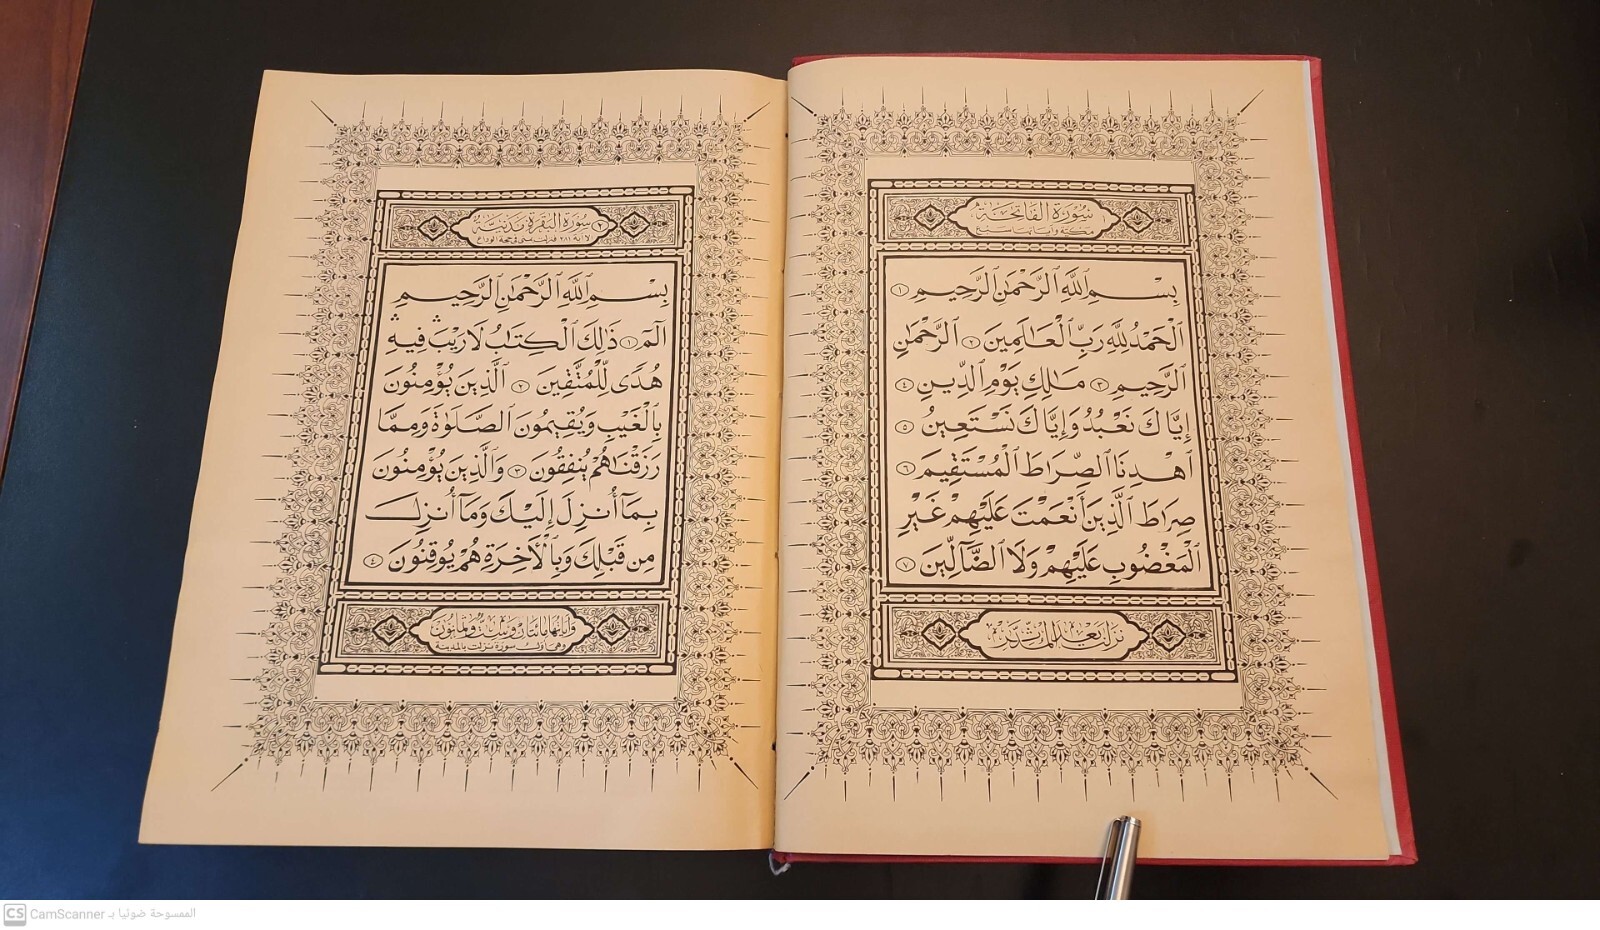 سُورَةُ الفَاتِحَةِ
مكية وآياتها سبع
بِسْمِ ٱللَّهِ ٱلرَّحْمَٰنِ ٱلرَّحِيمِ ١
ٱلْحَمْدُ لِلَّهِ رَبِّ ٱلْعَٰلَمِينَ ٢ ٱلرَّحْمَٰنِ
ٱلرَّحِيمِ ٣ مَٰلِكِ يَوْمِ ٱلدِّينِ ٤
إِيَّاكَ نَعْبُدُ وَإِيَّاكَ نَسْتَعِينُ ٥
ٱهْدِنَا ٱلصِّرَاطَ ٱلْمُسْتَقِيمَ ٦
صِرَاطَ ٱلَّذِينَ أَنْعَمْتَ عَلَيْهِمْ غَيْرِ
ٱلْمَغْضُوبِ عَلَيْهِمْ وَلَا ٱلضَّآلِّينَ ٧
نزلت بعد المدثر
٢ سُورَةُ البَقَرَةِ مَدَنِيَّة
إلا آية ٢٨١ فنزلت بمنى في حجة الوداع
بِسْمِ ٱللَّهِ ٱلرَّحْمَٰنِ ٱلرَّحِيمِ
الٓمٓ ١ ذَٰلِكَ ٱلْكِتَٰبُ لَا رَيْبَ ۛ فِيهِ ۛ
هُدًى لِّلْمُتَّقِينَ ٢ ٱلَّذِينَ يُؤْمِنُونَ
بِٱلْغَيْبِ وَيُقِيمُونَ ٱلصَّلَوٰةَ وَمِمَّا
رَزَقْنَٰهُمْ يُنفِقُونَ ٣ وَٱلَّذِينَ يُؤْمِنُونَ
بِمَآ أُنزِلَ إِلَيْكَ وَمَآ أُنزِلَ
مِن قَبْلِكَ وَبِٱلْأَخِرَةِ هُمْ يُوقِنُونَ ٤
وآياتها مائتان وست وثمانون
وهي أول سورة نزلت بالمدينة
CS CamScanner الممسوحة ضوئيا بـ